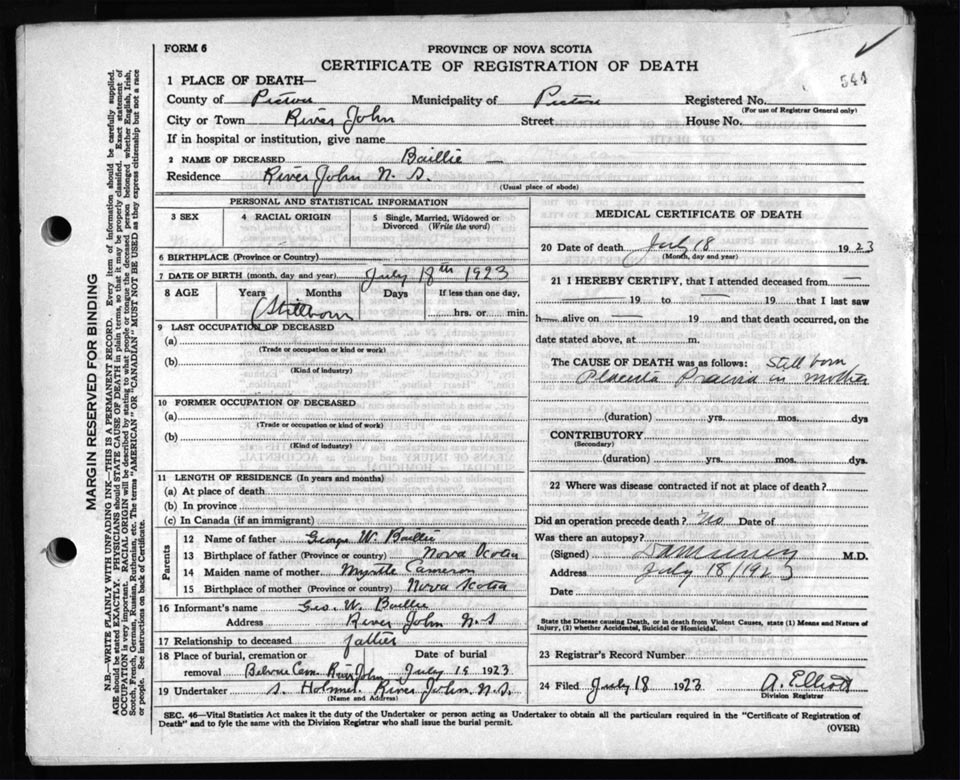 FORM 6
PROVINCE OF NOVA SCOTIA
CERTIFICATE OF REGISTRATION OF DEATH
544
1 PLACE OF DEATH—
County of Pictou Municipality of Pictou Registered No.
(For use of Registrar General only)
City or Town River John Street House No.
If in hospital or institution, give name
2 NAME OF DECEASED Baillie —
Residence River John N. S.
(Usual place of abode)
PERSONAL AND STATISTICAL INFORMATION
3 SEX 4 RACIAL ORIGIN 5 Single, Married, Widowed or
Divorced (Write the word)
6 BIRTHPLACE (Province or Country)
7 DATE OF BIRTH (month, day and year) July 18th 1923
8 AGE Years Months Days If less than one day,
(Stillborn hrs. or min.
9 LAST OCCUPATION OF DECEASED
(a)
(Trade or occupation or kind or work)
(b)
(Kind of industry)
10 FORMER OCCUPATION OF DECEASED
(a)
(Trade or occupation or kind of work)
(b)
(Kind of industry)
11 LENGTH OF RESIDENCE (In years and months)
(a) At place of death
(b) In province
(c) In Canada (if an immigrant)
Parents
12 Name of father George W. Baillie
13 Birthplace of father (Province or country) Nova Scotia
14 Maiden name of mother Myrtle Cameron
15 Birthplace of mother (Province or country) Nova Scotia
16 Informant's name Geo. W. Baillie
Address River John N.S
17 Relationship to deceased father
18 Place of burial, cremation or Date of burial
removal Cem. River John July 1923
19 Undertaker S. Holmes River John N.S.
(Name and Address)
MEDICAL CERTIFICATE OF DEATH
20 Date of death July 18 1923
(Month, day and year)
21 I HEREBY CERTIFY, that I attended deceased from —
— 19 to — 19 that I last saw
h— alive on — 19 and that death occurred, on the
date stated above, at m.
The CAUSE OF DEATH was as follows: Still born
Placenta Praevia in mother
(duration) yrs. mos. dys
CONTRIBUTORY
(Secondary)
(duration) yrs. mos. dys.
22 Where was disease contracted if not at place of death?
Did an operation precede death? No Date of
Was there an autopsy?
(Signed) M.D.
Address July 18/1923
Date
State the Disease causing Death, or in death from Violent Causes, state (1) Means and Nature of
Injury, (2) whether Accidental, Suicidal or Homicidal.
23 Registrar's Record Number
24 Filed July 18 1923 A. Elliott
Division Registrar
SEC. 46—Vital Statistics Act makes it the duty of the Undertaker or person acting as Undertaker to obtain all the particulars required in the "Certificate of Registration of
Death" and to fyle the same with the Division Registrar who shall issue the burial permit.
(OVER)
MARGIN RESERVED FOR BINDING
N.B.—WRITE PLAINLY WITH UNFADING INK—THIS IS A PERMANENT RECORD. Every item of information should be carefully supplied.
AGE should be stated EXACTLY. PHYSICIANS should STATE CAUSE OF DEATH in plain terms, so that it may be properly classified. Exact statement of
OCCUPATION is very important. RACIAL ORIGIN will be described by stating to what people or tongue the deceased person belonged whether English, Irish,
Scotch, French, German, Russian, Ruthenian, etc. The terms "AMERICAN" OR "CANADIAN" MUST NOT BE USED as they express citizenship but not a race
or people. See instructions on back of Certificate.